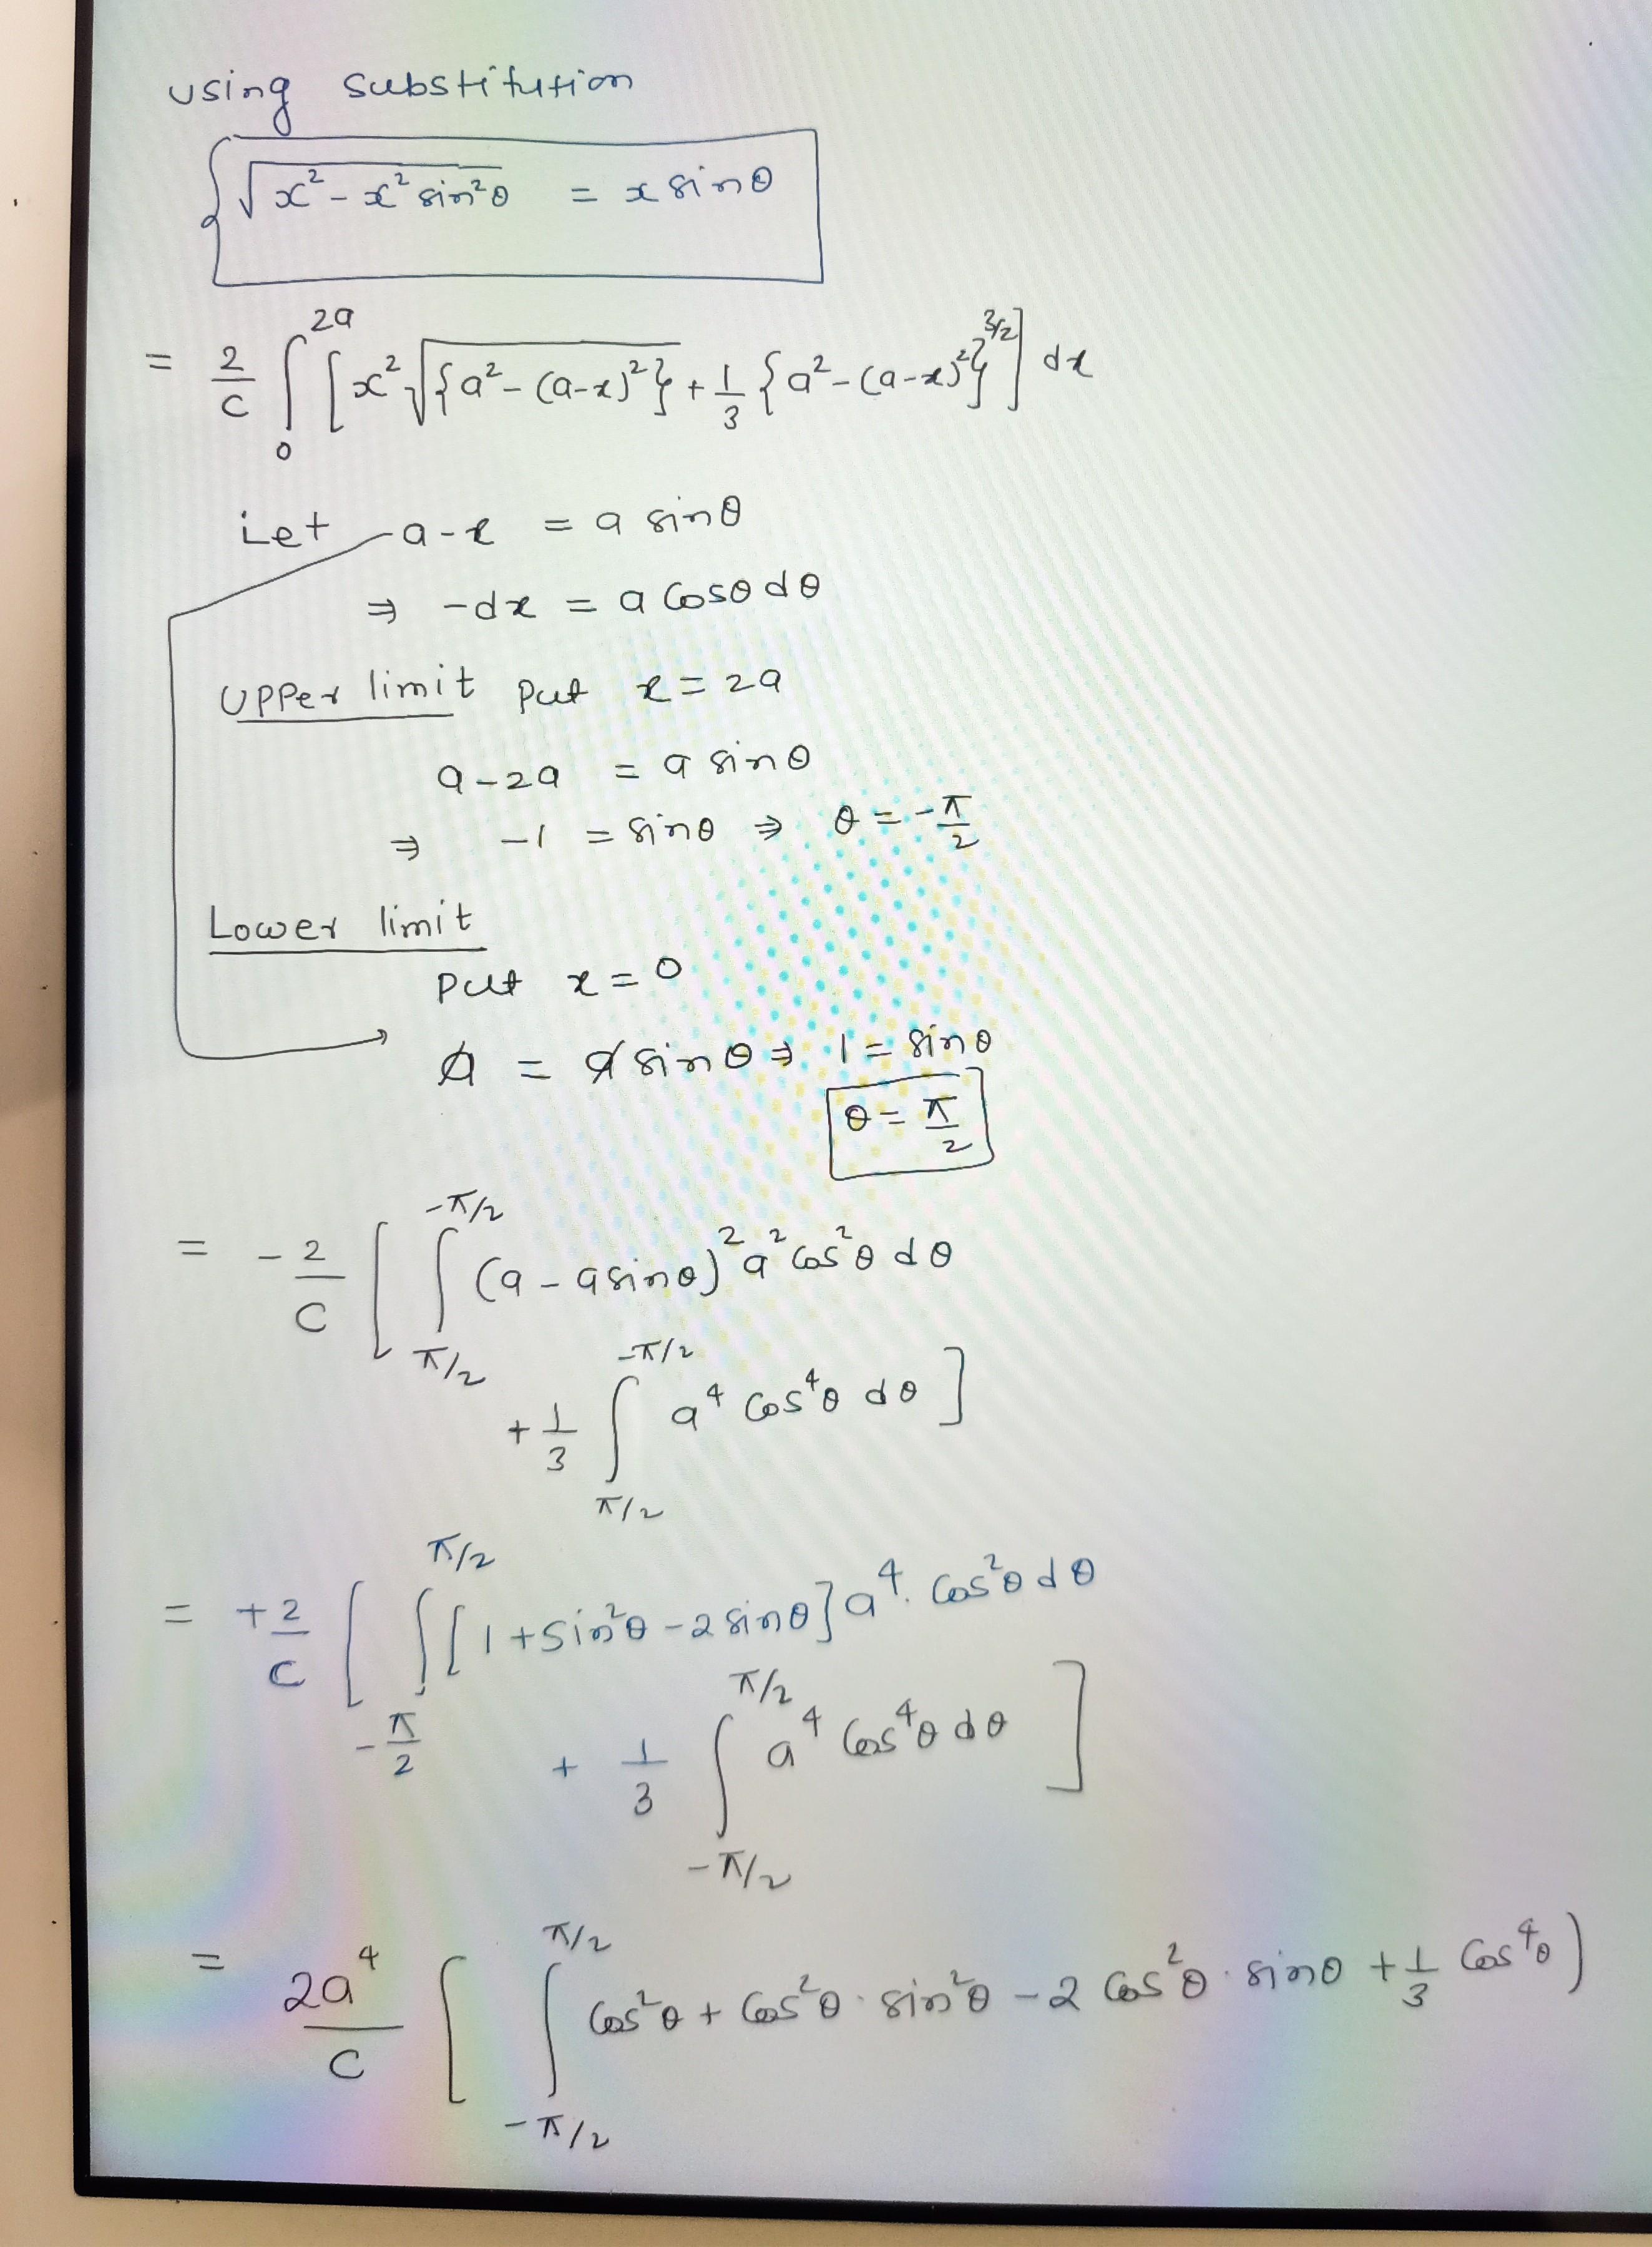 using substitution
√x² - x² sin²θ = x sinθ
= 2/c ∫₀^2a [x² √{a² - (a-x)²} + 1/3 {a² - (a-x)²}^3/2] dx
Let a-x = a sinθ
⇒ -dx = a Cosθ dθ
Upper limit put x = 2a
a - 2a = a sinθ
⇒ -1 = sinθ ⇒ θ = -π/2
Lower limit
Put x = 0
a = a sinθ ⇒ 1 = sinθ
θ = π/2
= -2/C [ ∫_π/2^-π/2 (a - a sinθ)² a² cos²θ dθ
+ 1/3 ∫_π/2^-π/2 a⁴ Cos⁴θ dθ ]
= +2/C [ ∫_-π/2^π/2 [1 + sin²θ - 2 sinθ] a⁴. Cos²θ dθ
+ 1/3 ∫_-π/2^π/2 a⁴ Cos⁴θ dθ ]
= 2a⁴/C [ ∫_-π/2^π/2 Cos²θ + Cos²θ · sin²θ - 2 Cos²θ · sinθ + 1/3 Cos⁴θ )